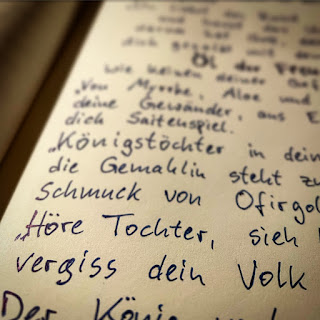 Öl der Freu
wie keinen deiner Gef
„Von Myrrhe, Aloe und
deine Gewänder, aus E
dich Saitenspiel.
„Königstöchter in dein
die Gemahlin steht zu
Schmuck von Ofirgol
„Höre Tochter, sieh
vergiss dein Volk
Der König